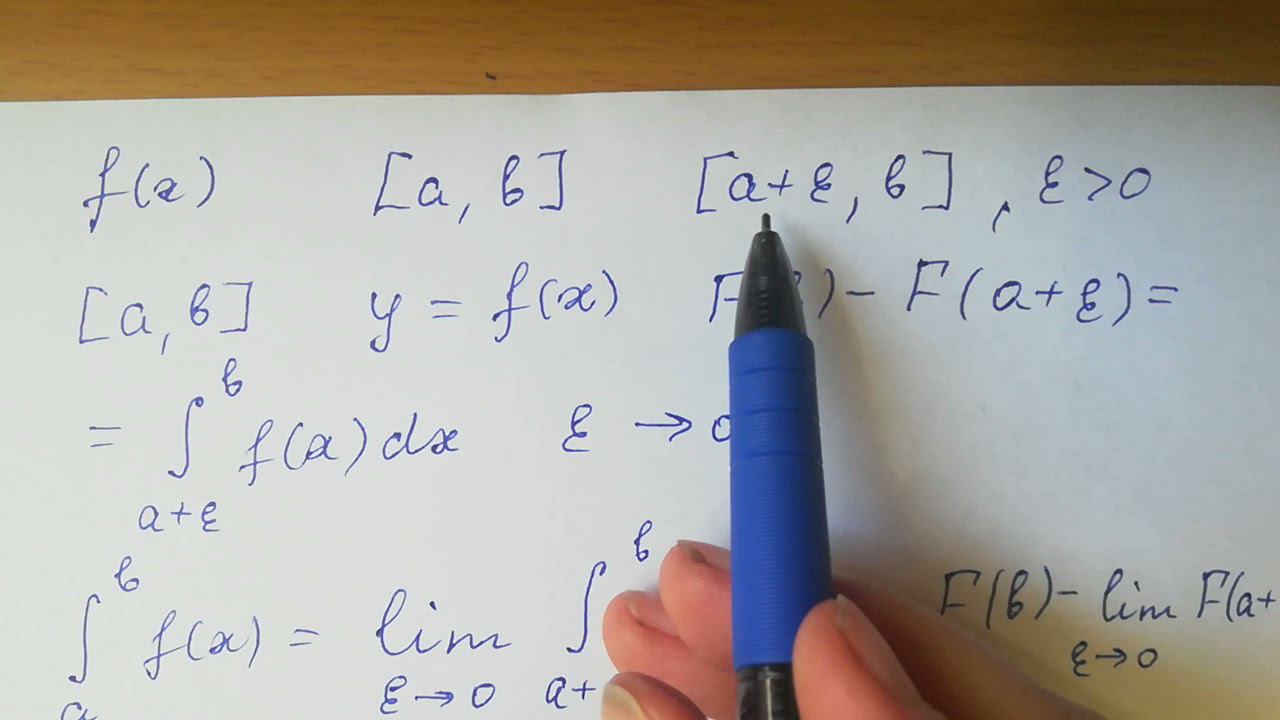 f(x) [a, b] [a+ε, b] , ε>0
[a, b] y = f(x) F )− F(a+ε)=
= ∫ b a+ε f(x)dx ε → 0
∫ b a f(x) = lim ε→0 ∫ b a+ F(b)− lim ε→0 F(a+